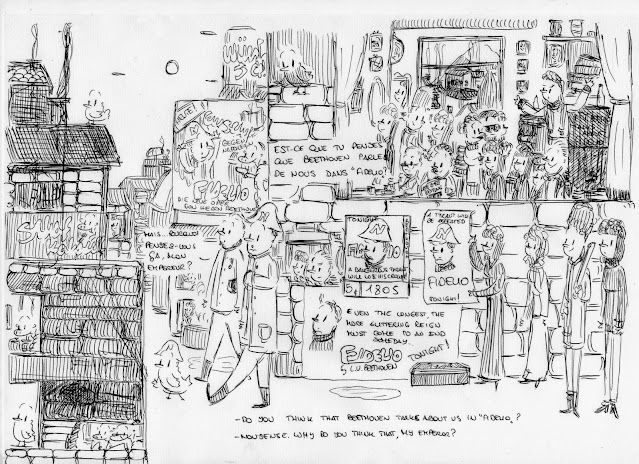 EST-CE QUE TU PENSES
QUE BEETHOVEN PARLE
DE NOUS DANS "FIDELIO?
MAIS... POURQUOI
PENSEZ-VOUS
ÇA, MON
EMPEREUR?
FIDELIO
DIE NEUE OPER
VON HERRN BEETHOVEN
TONIGHT
N
FIDELIO
A DANGEROUS TYRANT
WILL LOSE HIS CROWN
1805
A TYRANT WILL
BE DEFEATED
FIDELIO
TONIGHT!
EVEN THE LONGEST, THE
MORE GLITTERING REIGN
MUST COME TO AN END
SOMEDAY.
FIDELIO
TONIGHT!
L.V. BEETHOVEN
- DO YOU THINK THAT BEETHOVEN TALKS ABOUT US IN "FIDELIO"?
- NONSENSE. WHY DO YOU THINK THAT, MY EMPEROR?